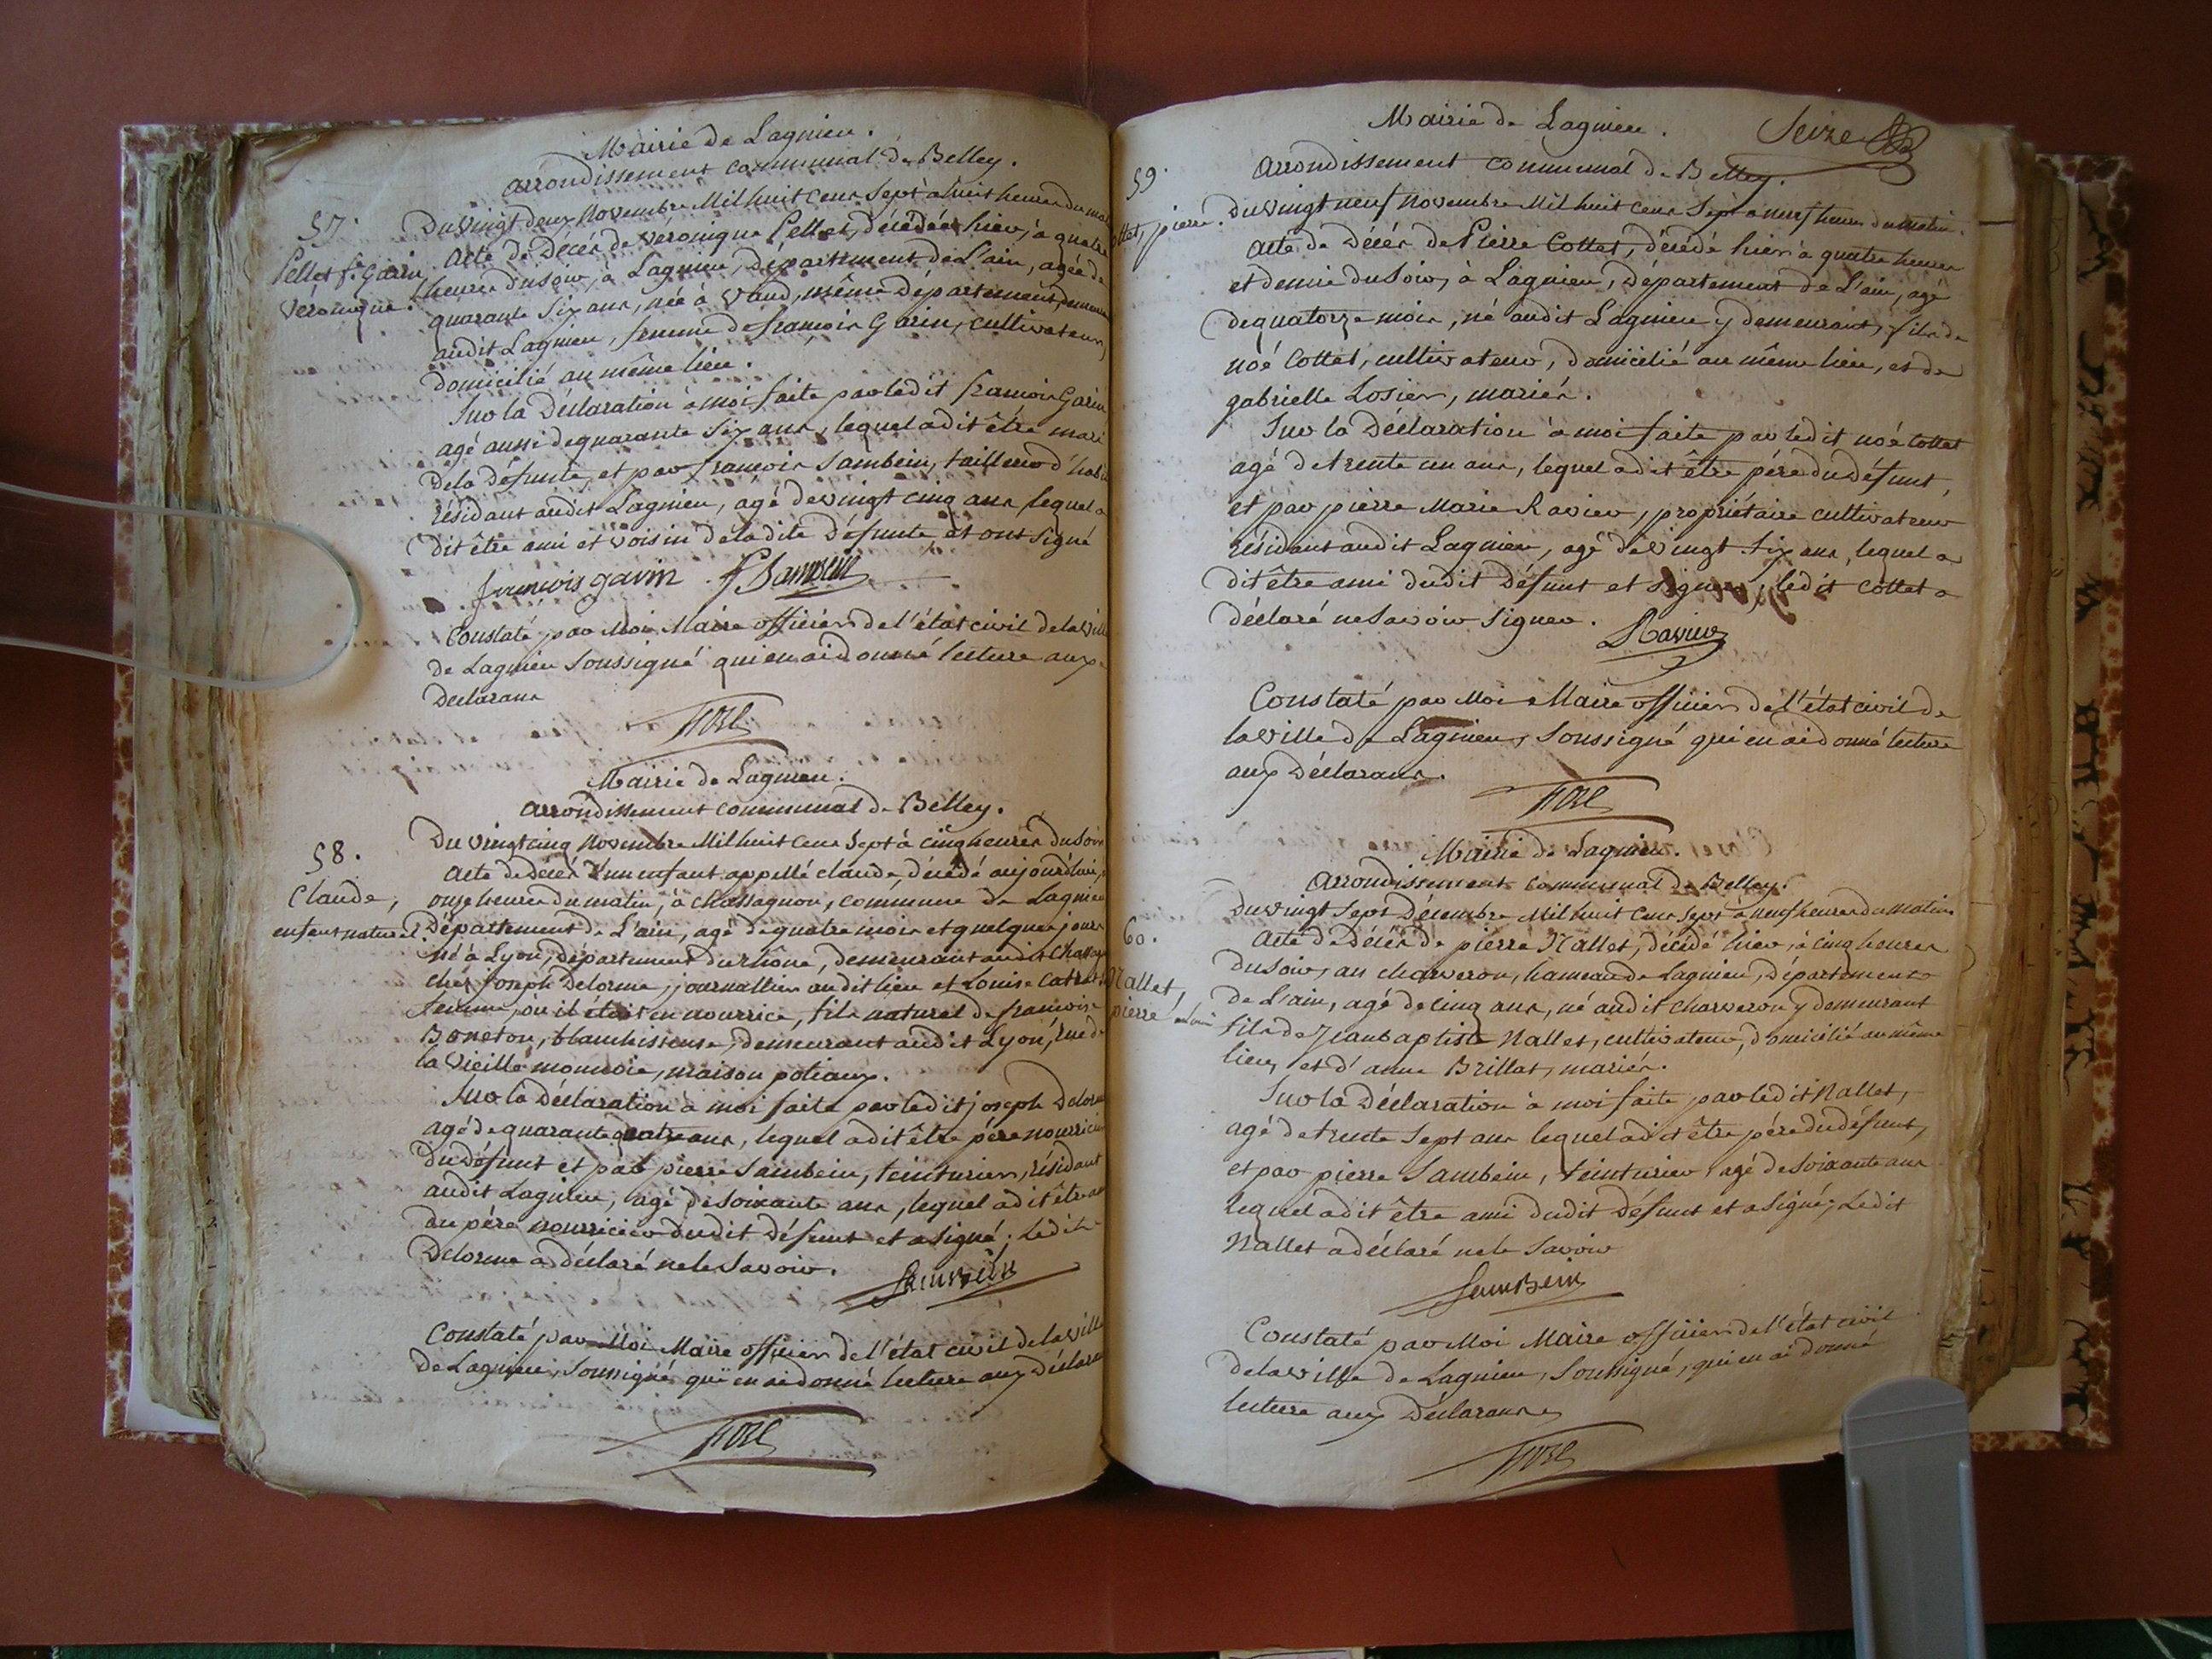 Mairie de Lagnieu.
arrondissement communal de Belley.
57.
Pellet fe. Garin
Véronique.
Du vingt deux Novembre Mil huit cens Sept à huit heures du mat
Acte de Décès de veronique Pellet, décédée hier, à quatre
heures du soir, à Lagnieu, Département de L'ain, agée de
quarante Six ans, née à Vaud, même Département, demeur
audit Lagnieu, femme de françois Garin, cultivateur,
domicilié au même lieu.
Sur la Déclaration à moi faite par ledit françois Garin
agé aussi de quarante Six ans, lequel a dit être mari
de la défunte, et par françois Sambein, tailleur d'habi
résidant audit Lagnieu, agé de vingt cinq ans lequel a
dit être ami et voisin de la dite défunte et ont signé
francois garin F Sambein
Constaté par Moi Maire officier de l'état civil de la ville
de Lagnieu Soussigné qui en ai donné lecture aux
Déclarans
Mairie de Lagnieu.
arrondissement communal de Belley.
58.
Claude,
enfant naturel.
Du vingt cinq Novembre Mil huit cens Sept à cinq heures du Soir
Acte de décès d'un enfant appellé claude, décédé aujourd'hui,
onze heures du matin, à Chassagnon, commune de Lagnieu
Département de L'ain, agé de quatre mois et quelques jours
né à Lyon, département du rhône, demeurant audit Chassag
chez joseph Delorme, journallier audit lieu et Louise
femme, où il étoit en nourrice, fils naturel de françoise
Boneton, blanchisseuse, demeurant audit Lyon, rue de
la vieille monnoie, maison potiaux.
Sur la Déclaration à moi faite par ledit joseph Delorm
agé de quarante quatre ans, lequel a dit être père nourricier
du défunt et par pierre Sambein, teinturier, résidant
audit Lagnieu, agé de soixante ans, lequel a dit être am
du père nourricier dudit défunt et a signé; ledit
Delorme a déclaré ne le Savoir.
Sambein
Constaté par Moi Maire officier de l'état civil de la ville
de Lagnieu, Soussigné qui en ai donné lecture aux Déclaran
Mairie de Lagnieu. Seize
arrondissement communal de Belley.
59.
ottet, pierre.
Du vingt neuf Novembre Mil huit cens Sept à neuf heures du matin.
Acte de Décès de Pierre Cottet, décédé hier à quatre heures
et demie du soir, à Lagnieu, Département de L'ain, agé
de quatorze mois, né audit Lagnieu y demeurant, fils de
noé Cottet, cultivateur, domicilié au même lieu, et de
gabrielle Losier, mariés.
Sur la Déclaration à moi faite par ledit noé Cottet
agé de trente un ans, lequel a dit être père du défunt,
et par pierre Marie Ravier, propriétaire cultivateur
résidant audit Lagnieu, agé de vingt Six ans, lequel a
dit être ami dudit défunt et signé, ledit Cottet a
déclaré ne Savoir Signer.
Ravier
Constaté par Moi Maire officier de l'état civil de
la ville de Lagnieu, Soussigné qui en ai donné lecture
aux Déclarans.
Mairie de Lagnieu.
arrondissement communal de Belley.
60.
Nallet,
pierre
Du vingt Sept Décembre Mil huit cens Sept à neuf heures du matin
Acte de Décès de pierre Nallet, décédé hier, à cinq heures
du soir, au charveron, hameau de Lagnieu, Département
de L'ain, agé de cinq ans, né audit charveron y demeurant
fils de Jean baptiste Nallet, cultivateur, domicilié au même
lieu, et d'anne Brillat, mariés.
Sur la Déclaration à moi faite par ledit Nallet,
agé de trente Sept ans lequel a dit être père du défunt,
et par pierre Sambein, teinturier agé de soixante ans
lequel a dit être ami dudit Défunt et a signé; Ledit
Nallet a déclaré ne le Savoir
Sambein
Constaté par Moi Maire officier de l'état civil
de la ville de Lagnieu, Soussigné, qui en ai donné
lecture aux Déclarans